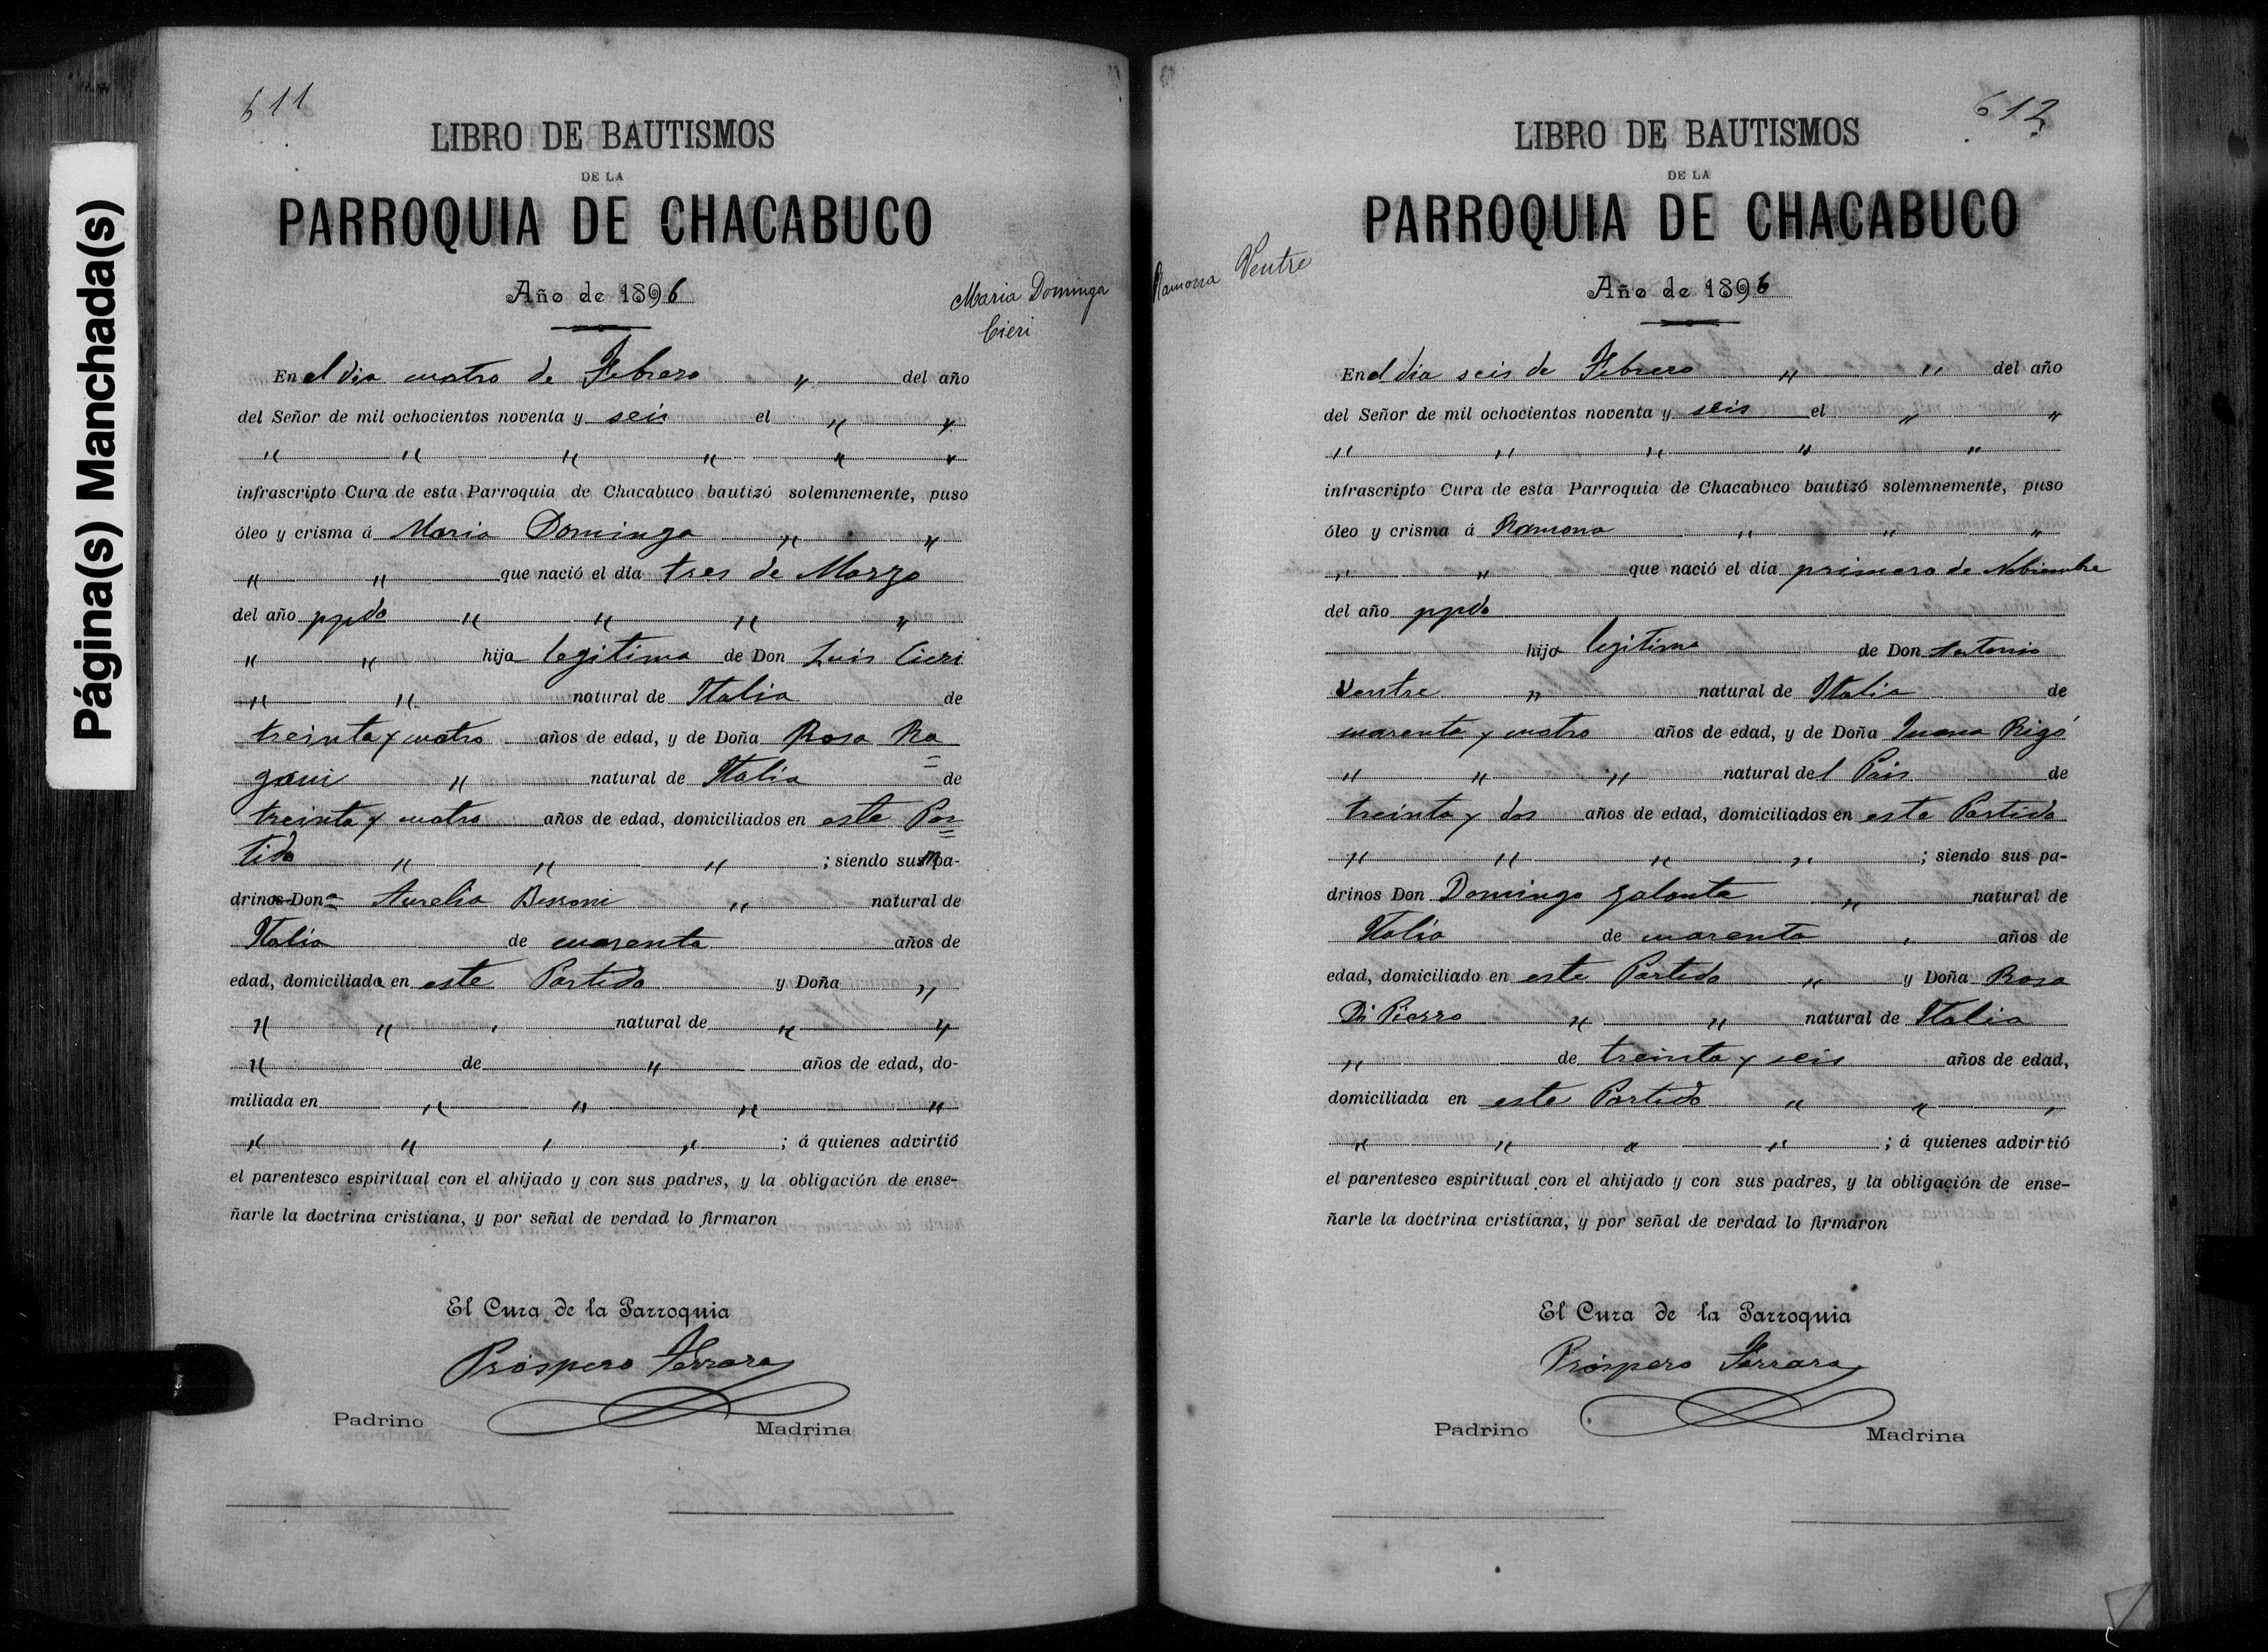 Página(s) Manchada(s)
611
LIBRO DE BAUTISMOS
DE LA
PARROQUIA DE CHACABUCO
Año de 1896
Maria Dominga
Cieri
En el dia cuatro de Febrero " del año
del Señor de mil ochocientos noventa y seis el " "
" " " " " "
infrascripto Cura de esta Parroquia de Chacabuco bautizó solemnemente, puso
óleo y crisma á Maria Dominga " "
" " que nació el dia tres de Marzo
del año ppdo " " " "
" " hija legitima de Don Luis Cieri
" " natural de Italia de
treinta y cuatro años de edad, y de Doña Rosa Ra=
gani " natural de Italia de
treinta y cuatro años de edad, domiciliados en este Par=
tido " " " ; siendo su m pa-
drinos Don a Aurelia Bessoni " natural de
Italia de cuarenta años de
edad, domiciliada en este Partido y Doña "
" " " natural de " "
" de " años de edad, do-
miliada en " " " "
" " " " ; á quienes advirtió
el parentesco espiritual con el ahijado y con sus padres, y la obligación de ense-
ñarle la doctrina cristiana, y por señal de verdad lo firmaron
El Cura de la Parroquia
Próspero Ferrara
Padrino Madrina
612
LIBRO DE BAUTISMOS
DE LA
PARROQUIA DE CHACABUCO
Ramona Ventre
Año de 1896
En el dia seis de Febrero " " del año
del Señor de mil ochocientos noventa y seis el " "
" " " " "
infrascripto Cura de esta Parroquia de Chacabuco bautizó solemnemente, puso
óleo y crisma á Ramona " " "
" " que nació el dia primero de Nobiembre
del año ppdo
hija legitima de Don Antonio
Ventre " natural de Italia de
cuarenta y cuatro años de edad, y de Doña Juana Rigó
" " " natural del Pais de
treinta y dos años de edad, domiciliados en este Partido
" " " " ; siendo sus pa-
drinos Don Domingo Galanta " natural de
Italia de cuarenta " años de
edad, domiciliado en este Partido " y Doña Rosa
Di Pierro " " natural de Italia
" de treinta y seis años de edad,
domiciliada en este Partido " " "
" " " " ; á quienes advirtió
el parentesco espiritual con el ahijado y con sus padres, y la obligación de ense-
ñarle la doctrina cristiana, y por señal de verdad lo firmaron
El Cura de la Parroquia
Próspero Ferrara
Padrino Madrina